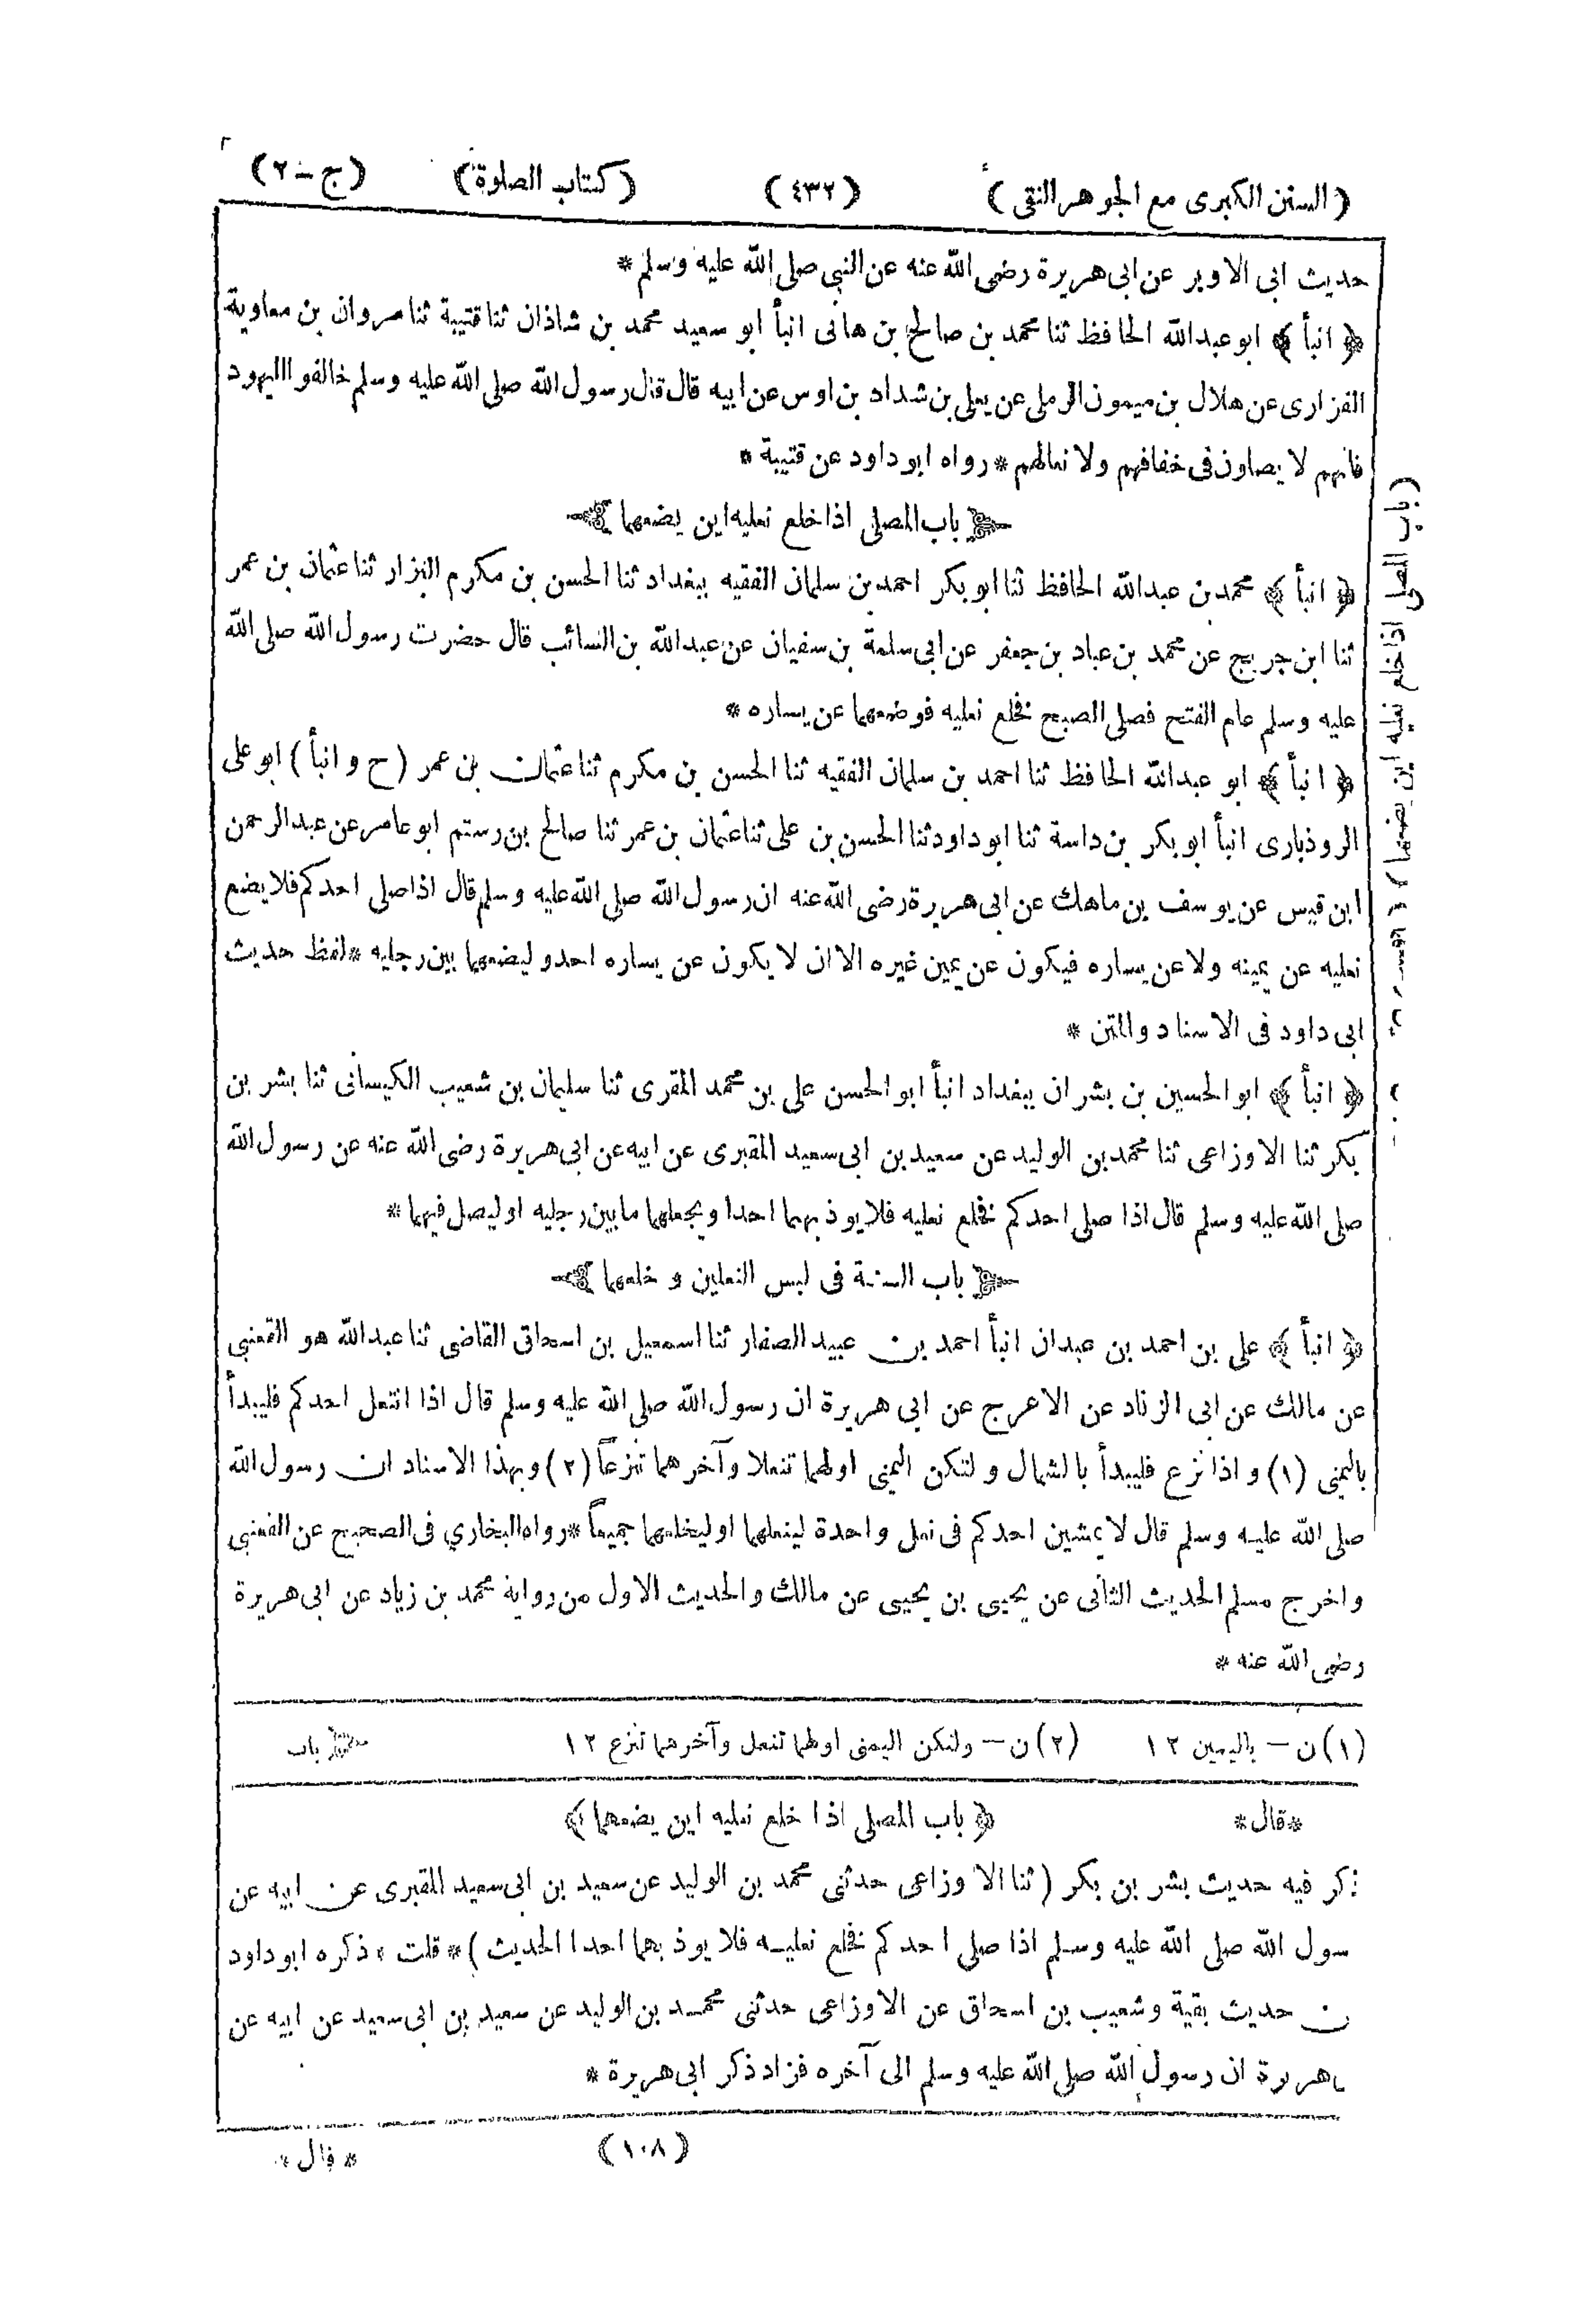 (السنن الكبرى مع الجوهر النقى) (٤٣٢) (كتاب الصلوة) (ج-٢)
حديث ابى الاوبر عن ابى هريرة رضى الله عنه عن النبى صلى الله عليه وسلم *
﴿ انبأ ﴾ ابو عبدالله الحافظ ثنا محمد بن صالح بن هانى انبأ ابو سعيد محمد بن شاذان ثنا قتيبة ثنا مروان بن معاوية
الفزارى عن هلال بن ميمون الرملى عن يعلى بن شداد بن اوس عن ابيه قال قال رسول الله صلى الله عليه وسلم خالفوا اليهود
فانهم لا يصلون فى خفافهم ولا نعالهم * رواه ابو داود عن قتيبة *
باب المصلى اذا خلع نعليه اين يضعهما
﴿ انبأ ﴾ محمد بن عبدالله الحافظ ثنا ابو بكر احمد بن سلمان الفقيه ببغداد ثنا الحسن بن مكرم البزار ثنا عثمان بن عمر
ثنا ابن جريج عن محمد بن عباد بن جعفر عن ابى سلمة بن سفيان عن عبدالله بن السائب قال حضرت رسول الله صلى الله
عليه وسلم عام الفتح فصلى الصبح فخلع نعليه فوضعهما عن يساره *
﴿ انبأ ﴾ ابو عبدالله الحافظ ثنا احمد بن سلمان الفقيه ثنا الحسن بن مكرم ثنا عثمان بن عمر (ح و انبأ) ابو على
الروذبارى انبأ ابو بكر بن داسة ثنا ابو داود ثنا الحسن بن على ثنا عثمان بن عمر ثنا صالح بن رستم ابو عامر عن عبد الرحمن
ابن قيس عن يوسف بن ماهك عن ابى هريرة رضى الله عنه ان رسول الله صلى الله عليه وسلم قال اذا صلى احدكم فلا يضع
نعليه عن يمينه ولا عن يساره فيكون عن يمين غيره الا ان لا يكون عن يساره احد وليضعهما بين رجليه * لفظ حديث
ابى داود فى الاسناد والمتن *
﴿ انبأ ﴾ ابو الحسين بن بشران ببغداد انبأ ابو الحسن على بن محمد المقرى ثنا سليمان بن شعيب الكيسانى ثنا بشر بن
بكر ثنا الاوزاعى ثنا محمد بن الوليد عن سعيد بن ابى سعيد المقبرى عن ابيه عن ابى هريرة رضى الله عنه عن رسول الله
صلى الله عليه وسلم قال اذا صلى احدكم فخلع نعليه فلا يوذ بهما احدا ويجعلهما ما بين رجليه او ليصل فيهما *
باب السنة فى لبس النعلين و خلعهما
﴿ انبأ ﴾ على بن احمد بن عبدان انبأ احمد بن عبيد الصفار ثنا اسمعيل بن اسحاق القاضى ثنا عبدالله هو القعنبى
عن مالك عن ابى الزناد عن الاعرج عن ابى هريرة ان رسول الله صلى الله عليه وسلم قال اذا انتعل احدكم فليبدأ
باليمنى (١) و اذا نزع فليبدأ بالشمال و لتكن اليمنى اولهما تنعلا وآخرهما تنزعاً (٢) وبهذا الاسناد ان رسول الله
صلى الله عليه وسلم قال لا يمشين احدكم فى نعل واحدة لينعلهما او ليخلعهما جميعاً * رواه البخاري فى الصحيح عن القعنبى
واخرج مسلم الحديث الثانى عن يحيى بن يحيى عن مالك والحديث الاول من رواية محمد بن زياد عن ابى هريرة
رضى الله عنه *
(١) ن – باليمين ١٢ (٢) ن – ولتكن اليمنى اولهما تنعل وآخرهما تنزع ١٢ باب
*قال* ﴿ باب المصلى اذا خلع نعليه اين يضعهما ﴾
ذكر فيه حديث بشر بن بكر (ثنا الاوزاعى حدثنى محمد بن الوليد عن سعيد بن ابى سعيد المقبرى عن ابيه عن
سول الله صلى الله عليه وسلم اذا صلى احدكم فخلع نعليه فلا يوذ بهما احدا الحديث) * قلت * ذكره ابو داود
ن حديث بقية وشعيب بن اسحاق عن الاوزاعى حدثنى محمد بن الوليد عن سعيد بن ابى سعيد عن ابيه عن
هريرة ان رسول الله صلى الله عليه وسلم الى آخره فزاد ذكر ابى هريرة *
(١٠٨) * قال *
(باب المصلى اذا خلع نعليه اين يضعهما)